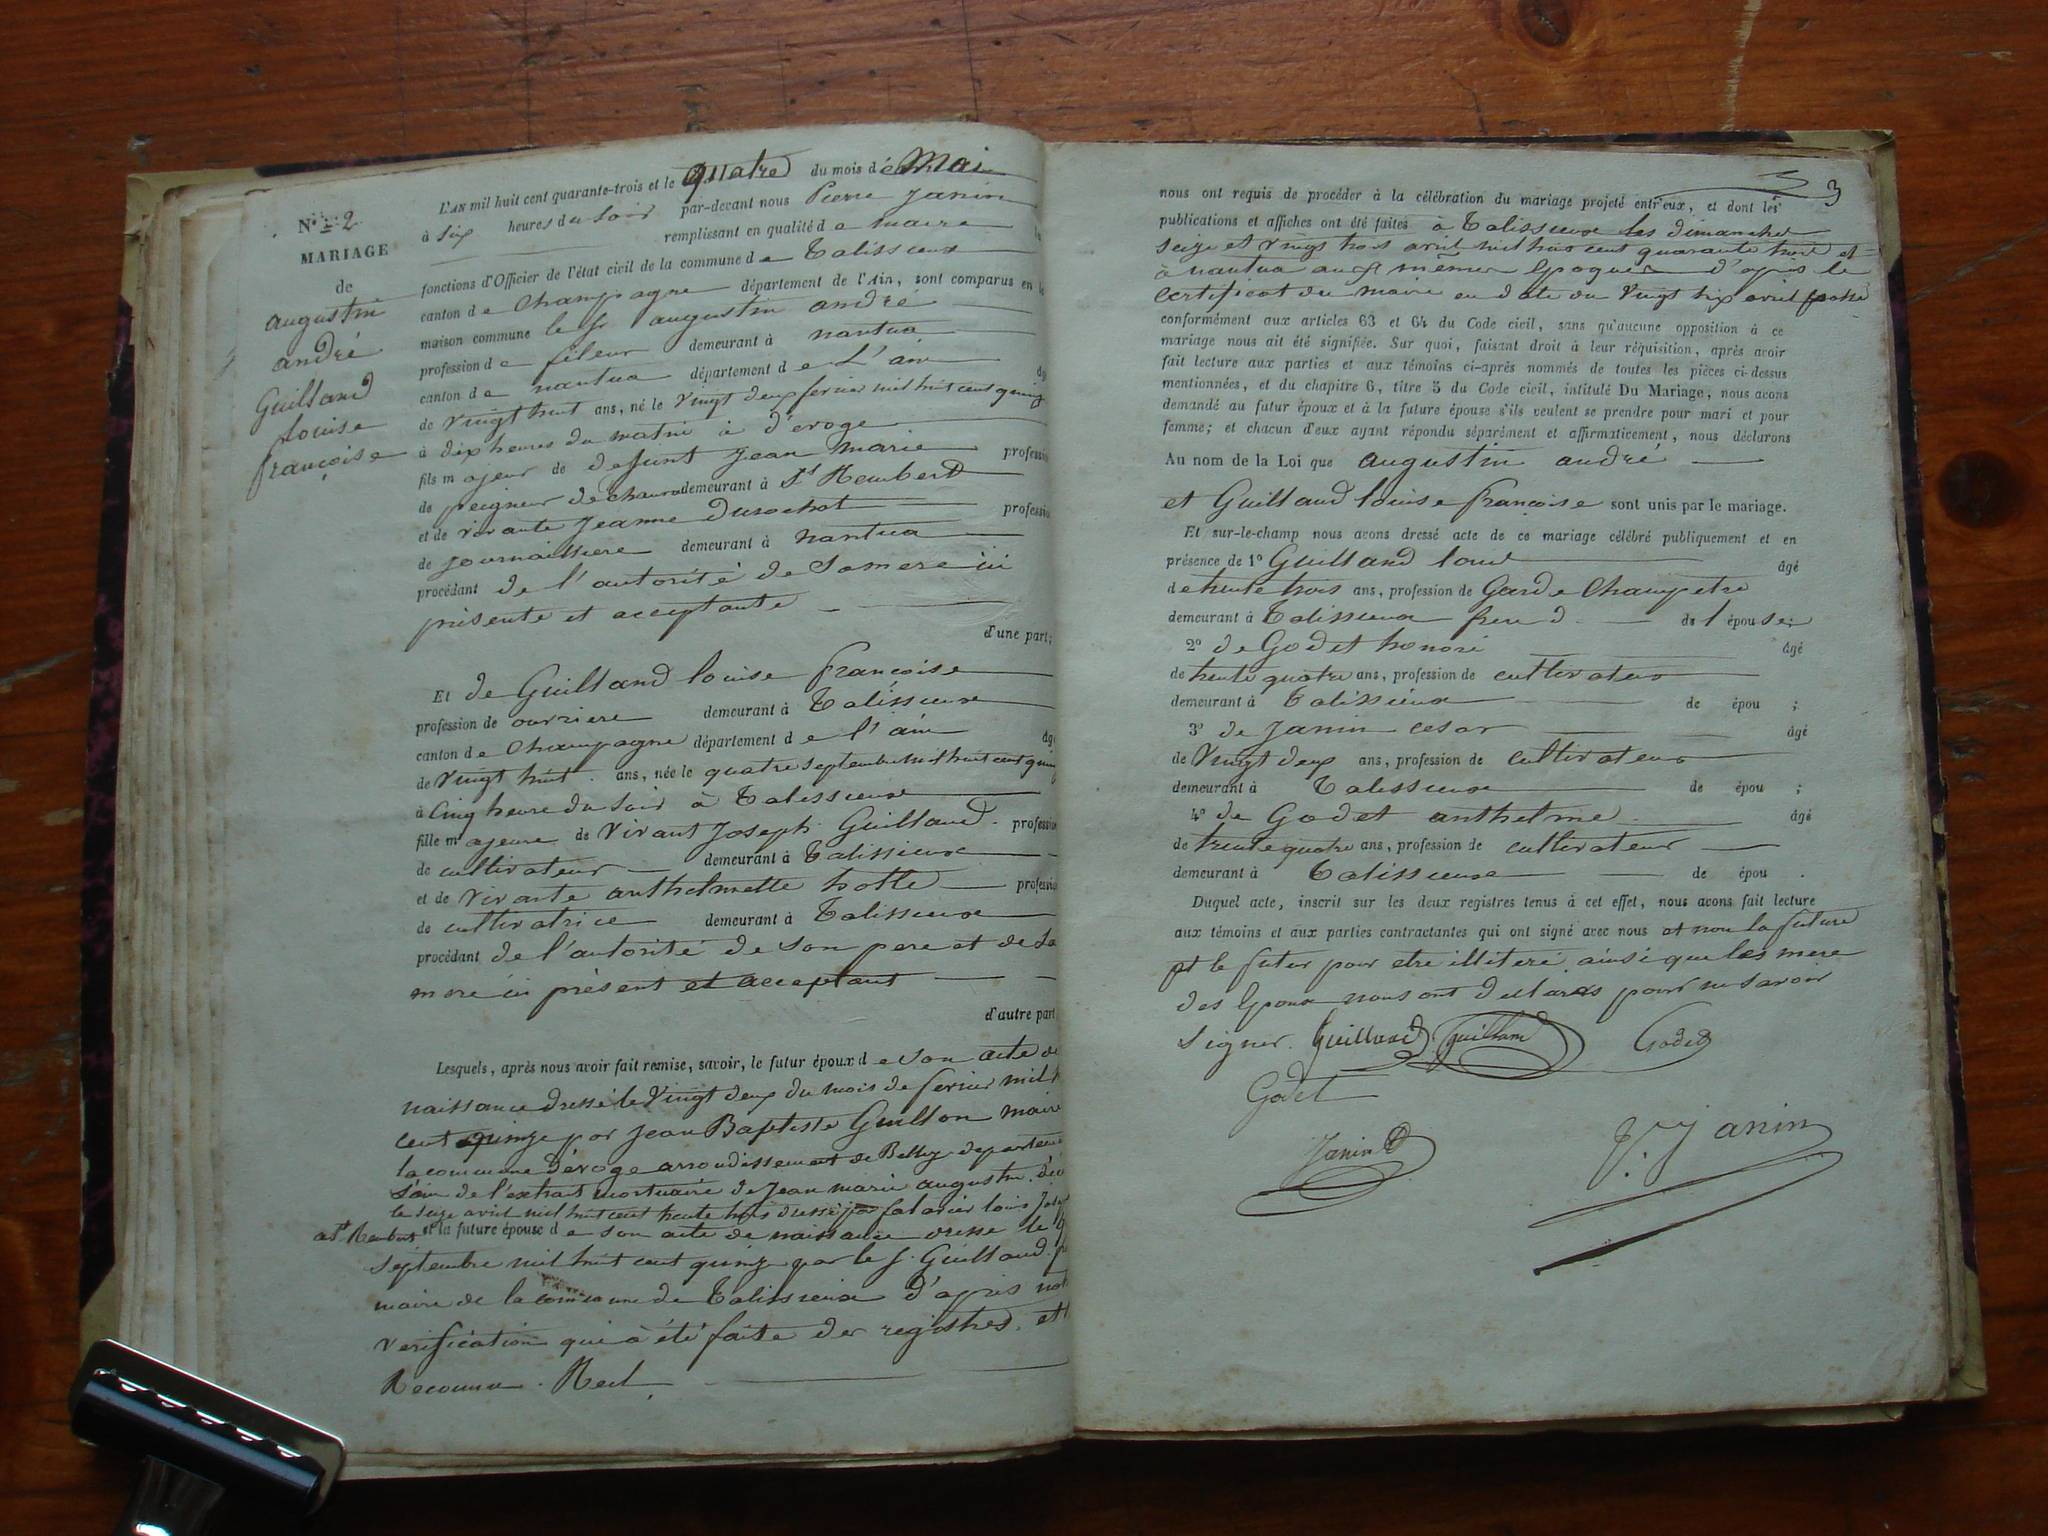 N° 2
MARIAGE
de
augustin
andré
Guilland
Louise
françoise
L'AN mil huit cent quarante-trois et le quatre du mois de Mai
à six heures du soir par-devant nous Pierre Janin
remplissant en qualité de maire
fonctions d'Officier de l'état civil de la commune de Talissieux
canton de Champagne département de l'Ain, sont comparus en
maison commune le Sr augustin andré
profession de fileur demeurant à nantua
canton de nantua département de L'ain
de vingt huit ans, né le vingt deux fevrier mil huit cent quinz
à dix heures du matin à d'evoge
fils majeur de defunt Jean Marie profession
de peigneur de chanvre demeurant à St Rembert
et de vivante Jeanne Durochat profession
de journaillere demeurant à nantua
procédant de l'autorité de sa mere ici
présente et acceptante
d'une part;
Et de Guilland louise françoise
profession de ouvriere demeurant à Talissieux
canton de Champagne département de l'ain
de vingt huit ans, née le quatre septembre mil huit cent quinz
à Cinq heure du soir à Talissieux
fille majeure de vivant Joseph Guilland profession
de cultivateur demeurant à Talissieux
et de vivante anthelmette profession
de cultivatrice demeurant à Talissieux
procédant de l'autorité de son pere et de sa
mere ici présent et acceptant
d'autre part
Lesquels, après nous avoir fait remise, savoir, le futur époux de son acte de
naissance dressé le vingt deux du mois de fevrier mil
cent quinze par Jean Baptiste Guillon maire
la commune d'évoge arrondissement de Belley departeme
l'ain de l'extrait mortuaire de Jean marie augustin
le seize avril mil huit cent trente trois dressé par louis
a St Rembert et la future épouse de son acte de naissance dresse le
septembre mil huit cent quinze par le S. Guilland
maire de la commune de Talissieux d'apres
verification qui à été faite der registres. et
Reconnu
3
nous ont requis de procéder à la célébration du mariage projeté entr'eux, et dont les
publications et affiches ont été faites à Talissieux les dimanches
seize et vingt trois avril mil huit cent quarante trois et
à nantua aux mêmes Epoques d'apres le
certificat du maire en date du vingt six avril
conformément aux articles 63 et 64 du Code civil, sans qu'aucune opposition à ce
mariage nous ait été signifiée. Sur quoi, faisant droit à leur réquisition, après avoir
fait lecture aux parties et aux témoins ci-après nommés de toutes les pièces ci-dessus
mentionnées, et du chapitre 6, titre 5 du Code civil, intitulé Du Mariage, nous avons
demandé au futur époux et à la future épouse s'ils veulent se prendre pour mari et pour
femme; et chacun d'eux ayant répondu séparément et affirmativement, nous déclarons
Au nom de la Loi que augustin andré
et Guilland louise françoise sont unis par le mariage.
Et sur-le-champ nous avons dressé acte de ce mariage célébré publiquement et en
présence de 1° Guilland louis âgé
de trente trois ans, profession de Garde Champetre
demeurant à Talissieux frere d de l'épouse;
2° de Godet honoré âgé
de trente quatre ans, profession de cultivateur
demeurant à Talissieux de épou ;
3° de Janin cesar âgé
de vingt deux ans, profession de cultivateur
demeurant à Talissieux de épou ;
4° de Godet anthelme âgé
de trente quatre ans, profession de cultivateur
demeurant à Talissieux de épou .
Duquel acte, inscrit sur les deux registres tenus à cet effet, nous avons fait lecture
aux témoins et aux parties contractantes qui ont signé avec nous et non la future
et le futur pour etre illiteré ainsi que les mere
des Epoux nous ont declarés pour ne savoir
signer. Guilland Guilland Godet
Godet
Janin C
P. Janin